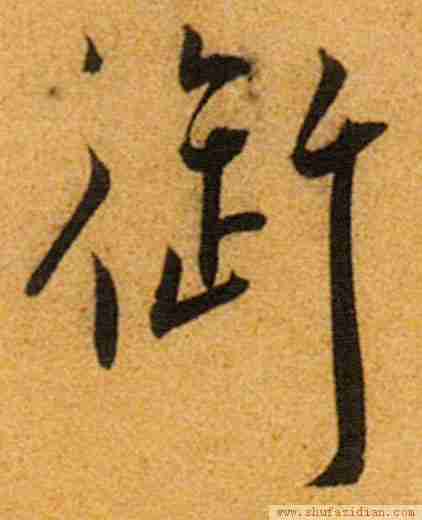 御
www.shufazidian.com